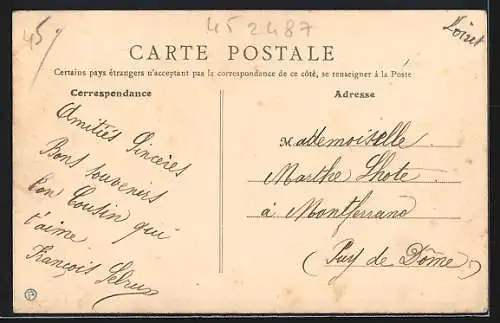 45
452487
Loiret
CARTE POSTALE
Certains pays étrangers n'acceptant pas la correspondance de ce côté, se renseigner à la Poste
Correspondance
Amitiés Sincères
Bons souvenirs
Ton Cousin qui
t'aime
François
Adresse
Mademoiselle
Marthe Lhote
à Montferrand
(Puy de Dôme)